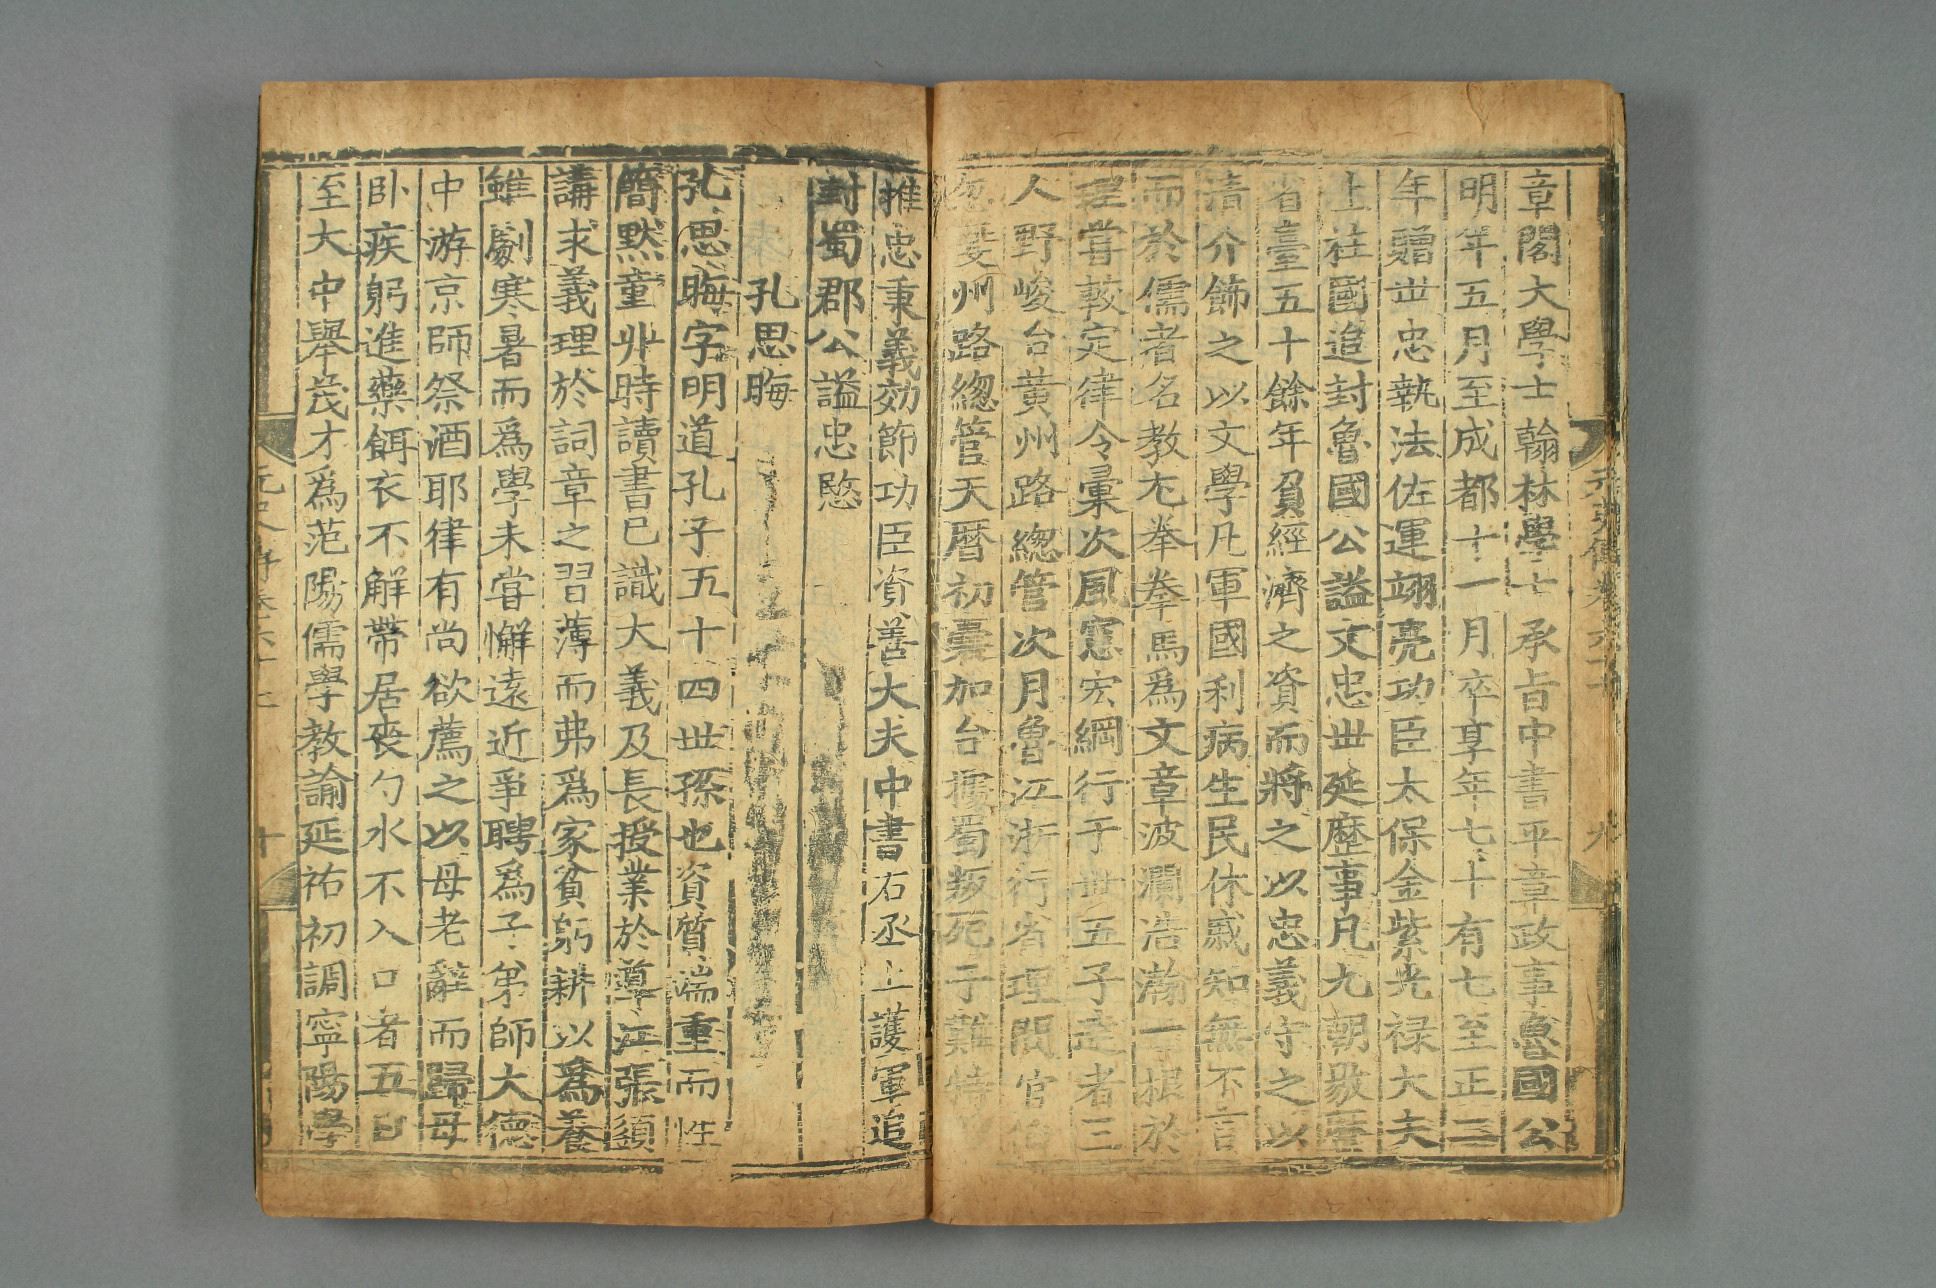 元史傳卷六十七 九
章閣大學士翰林學士承旨中書平章政事魯國公
明年五月至成都十一月卒享年七十有七至正二
年贈丗忠執法佐運翊亮功臣太保金紫光禄大夫
上柱國追封魯國公謚文忠丗延歷事凡九朝敭歷
省臺五十餘年負經濟之資而將之以忠義守之以
清介飾之以文學凡軍國利病生民休戚知無不言
而於儒者名教尤拳拳焉爲文章波瀾浩瀚一根於
理嘗較定律令彙次風憲宏綱行于丗五子達者三
人野峻台黃州路緫管次月魯江浙行省理問官
忽婺州路緫管天曆初囊加台據蜀叛死于難特
推忠秉義効節功臣資善大夫中書右丞上護軍追
封蜀郡公謚忠愍
孔思晦
孔思晦字明道孔子五十四丗孫也資質端重而性
簡黙童丱時讀書已識大義及長授業於導江張䇓
講求義理於詞章之習薄而弗爲家貧躬耕以爲養
雖劇寒暑而爲學未嘗懈遠近爭聘爲子弟師大德
中游京師祭酒耶律有尚欲薦之以母老辭而歸母
卧疾躬進藥餌衣不解帶居丧勺水不入口者五日
至大中舉茂才爲范陽儒學教諭延祐初調寧陽學
元史傳卷六十七 十